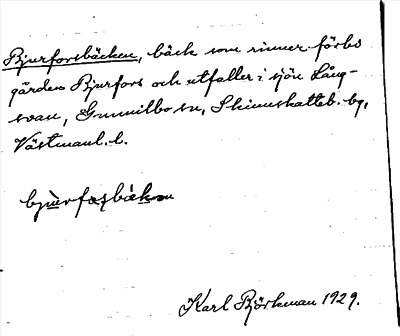 Bjurforsbäcken, bäck som rinner förbi
gården Bjurfors och utfaller i sjön Lång-
svan, Gunnilbo sn, Skinnskatteb. bg,
Västmanl. l.
bjùrfɷṣbäkən
Karl Björkman 1929.